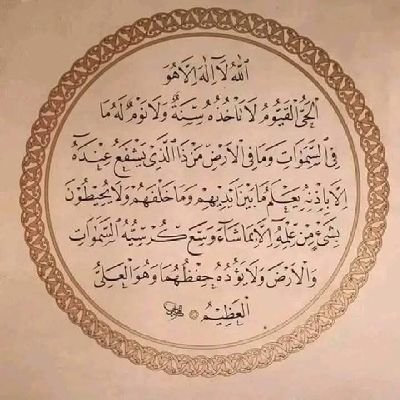 ٱللَّهُ لَآ إِلَٰهَ إِلَّا هُوَ
ٱلْحَىُّ ٱلْقَيُّومُ لَا تَأْخُذُهُ سِنَةٌ وَلَا نَوْمٌ لَهُ مَا
فِى ٱلسَّمَٰوَاتِ وَمَا فِى ٱلْأَرْضِ مَنْ ذَا ٱلَّذِى يَشْفَعُ عِنْدَهُ
إِلَّا بِإِذْنِهِ يَعْلَمُ مَا بَيْنَ أَيْدِيهِمْ وَمَا خَلْفَهُمْ وَلَا يُحِيطُونَ
بِشَىْءٍ مِنْ عِلْمِهِ إِلَّا بِمَا شَآءَ وَسِعَ كُرْسِيُّهُ ٱلسَّمَٰوَاتِ
وَٱلْأَرْضَ وَلَا يَؤُدُهُ حِفْظُهُمَا وَهُوَ ٱلْعَلِىُّ
ٱلْعَظِيمُ